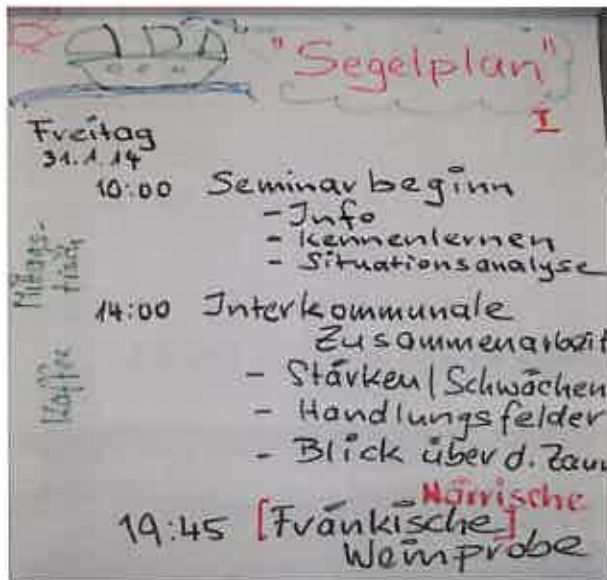 "Segelplan"
I
Freitag
31.1.14
10:00 Seminarbeginn
- Info
- Kennenlernen
- Situationsanalyse
Mittags-
tisch
14:00 Interkommunale
Zusammenarbeit
- Stärken | Schwächen
- Handlungsfelder
- Blick über d. Zaun
Kaffee
Närrische
19:45 [Fränkische]
Weinprobe